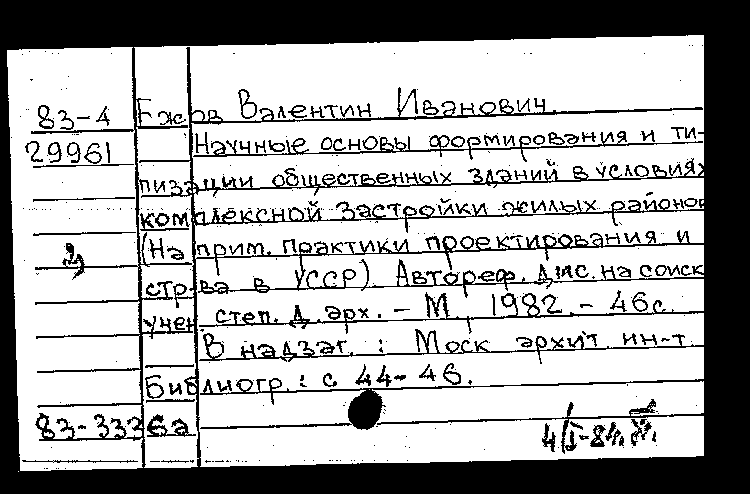 83-4 Ежов Валентин Иванович.
29961 Научные основы формирования и ти-
пизации общественных зданий в условиях
комплексной застройки жилых районов
(На прим. практики проектирования и
стр-ва в УССР). Автореф. дис. на соиск.
учен. степ. д. арх. - М., 1982. - 46 с.
В надзаг.: Моск архит. ин-т.
Библиогр.: с 44-46.
83-3336а